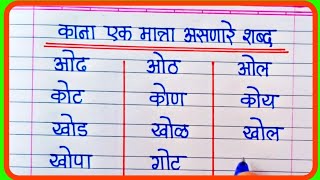 काना एक मात्रा असणारे शब्द
ओढ ओठ ओल
कोट कोण कोय
खोड खोळ खोल
खोपा गोट